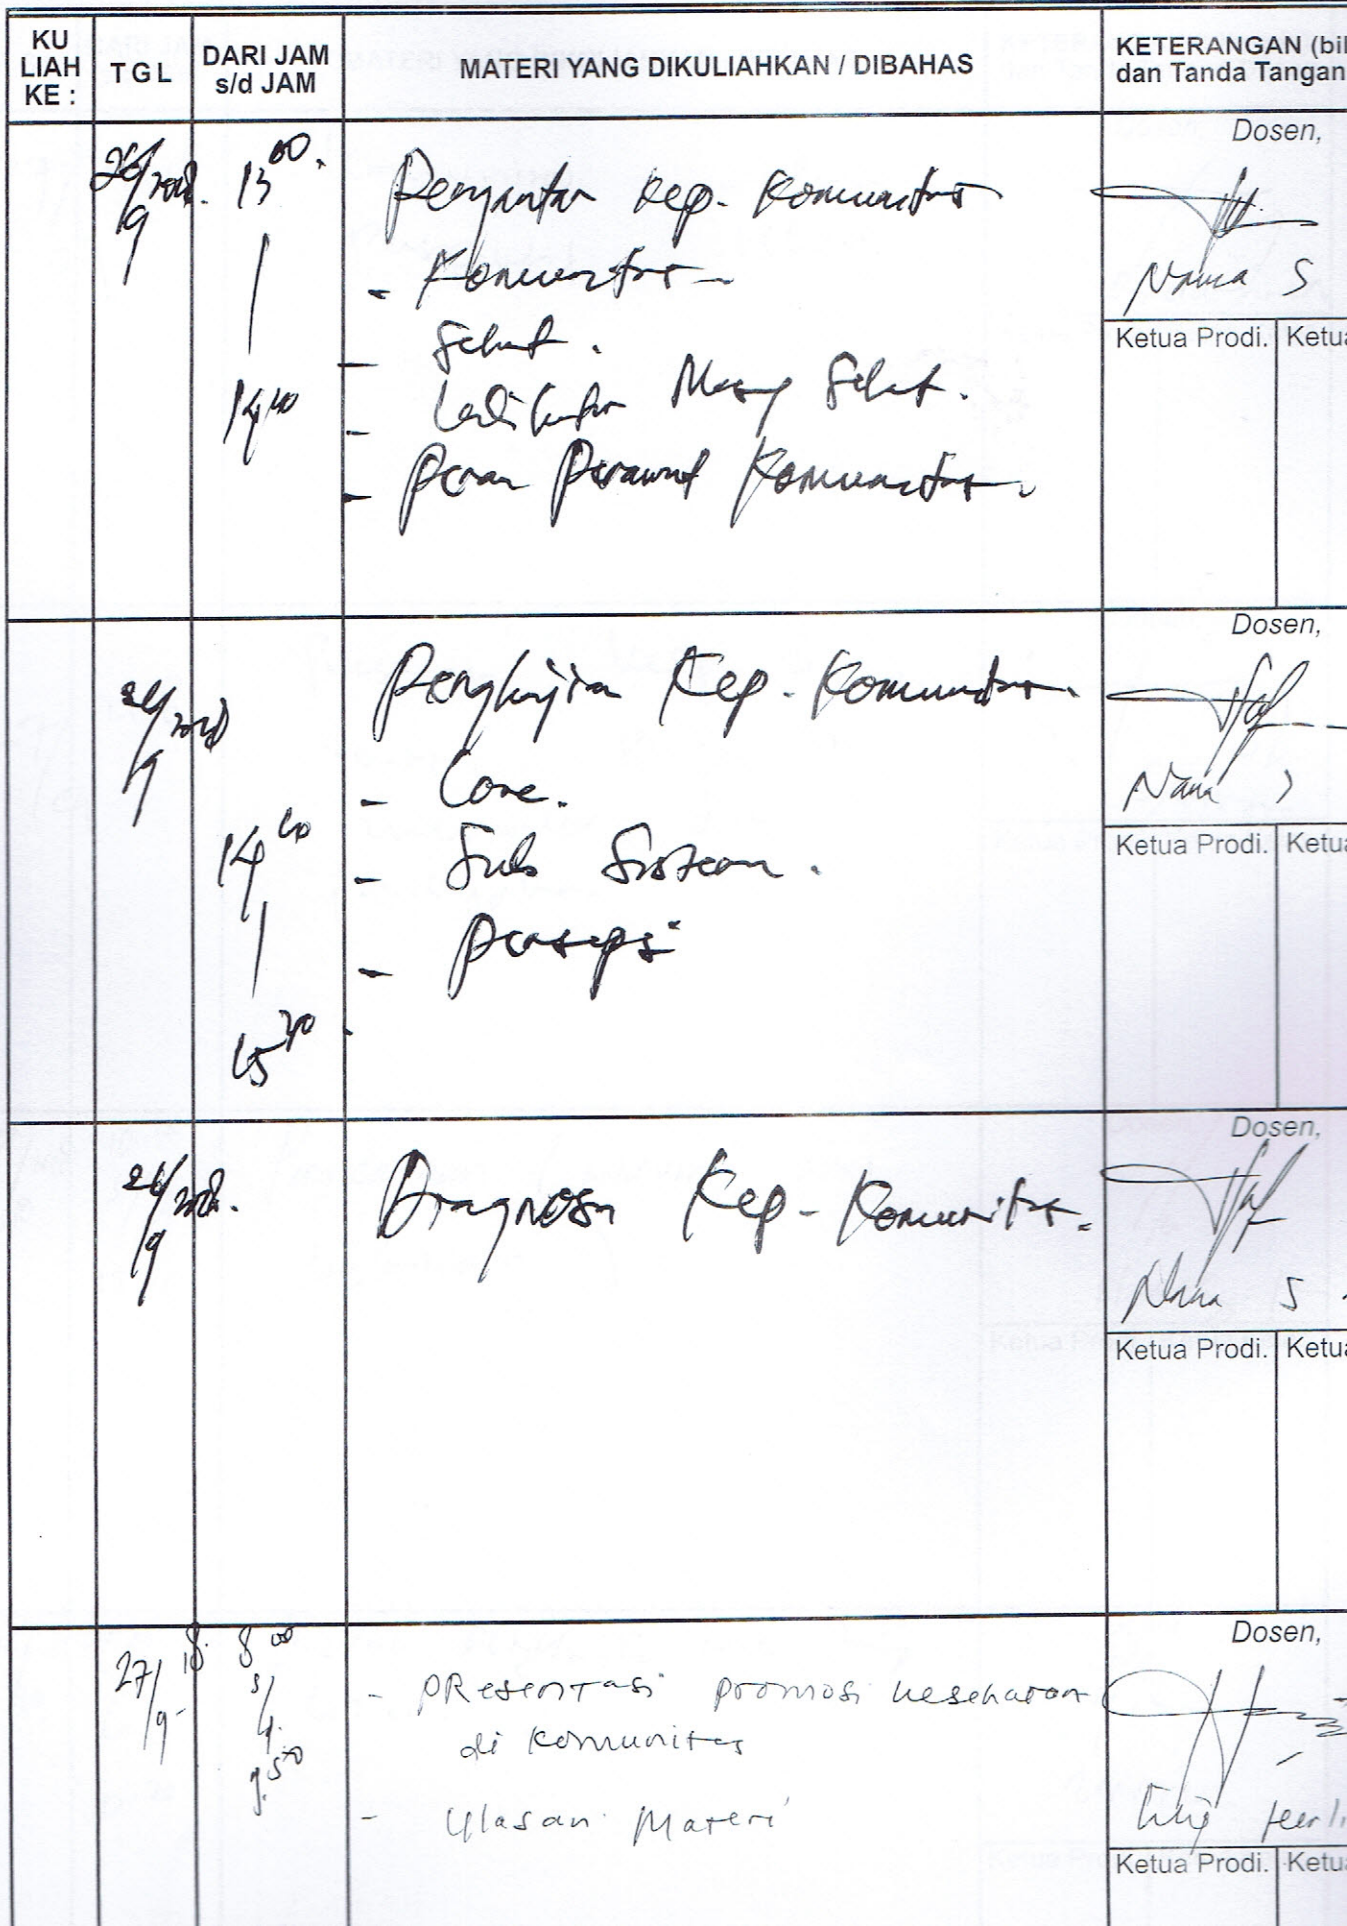 KU LIAH KE :
TGL
DARI JAM s/d JAM
MATERI YANG DIKULIAHKAN / DIBAHAS
KETERANGAN (bil
dan Tanda Tangan
Dosen,
26/9 2018. 13 00.
Pengantar Kep. Komunitas
- Komunitas
- Sehat.
14 40
- Masy Sehat.
- Peran Perawat Komunitas.
Nana S
Ketua Prodi. Ketua
Dosen,
26/9 2018
Pengkajian Kep. Komunitas.
- Core.
14 40
- Sub Sistem.
- persepsi
15 30
Nana S
Ketua Prodi. Ketua
Dosen,
26/9 2018.
Diagnosa Kep. Komunitas.
Nana S
Ketua Prodi. Ketua
Dosen,
27/9-18. 8 00
s/d.
9.50
- PResentasi promosi kesehatan
di Komunitas
- Ulasan Materi
Ketua Prodi. Ketua